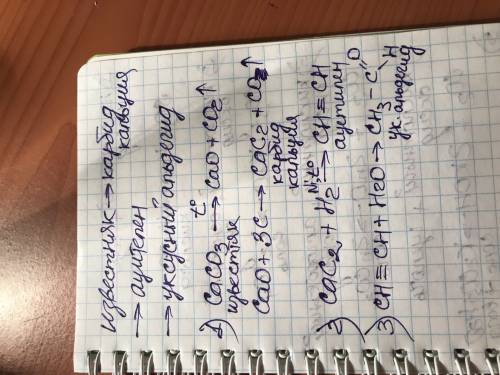 Известняк → карбид
кальция
→ ацетилен
→ уксусный альдегид
1) CaCO3 t° → CaO + CO2 ↑
известняк
CaO + 3C → CaC2 + CO2 ↑
карбид
кальция
2) CaC2 + H2 Ni, t° → CH ≡ CH
ацетилен
3) CH ≡ CH + H2O → CH3 - C O H
ук. альдегид